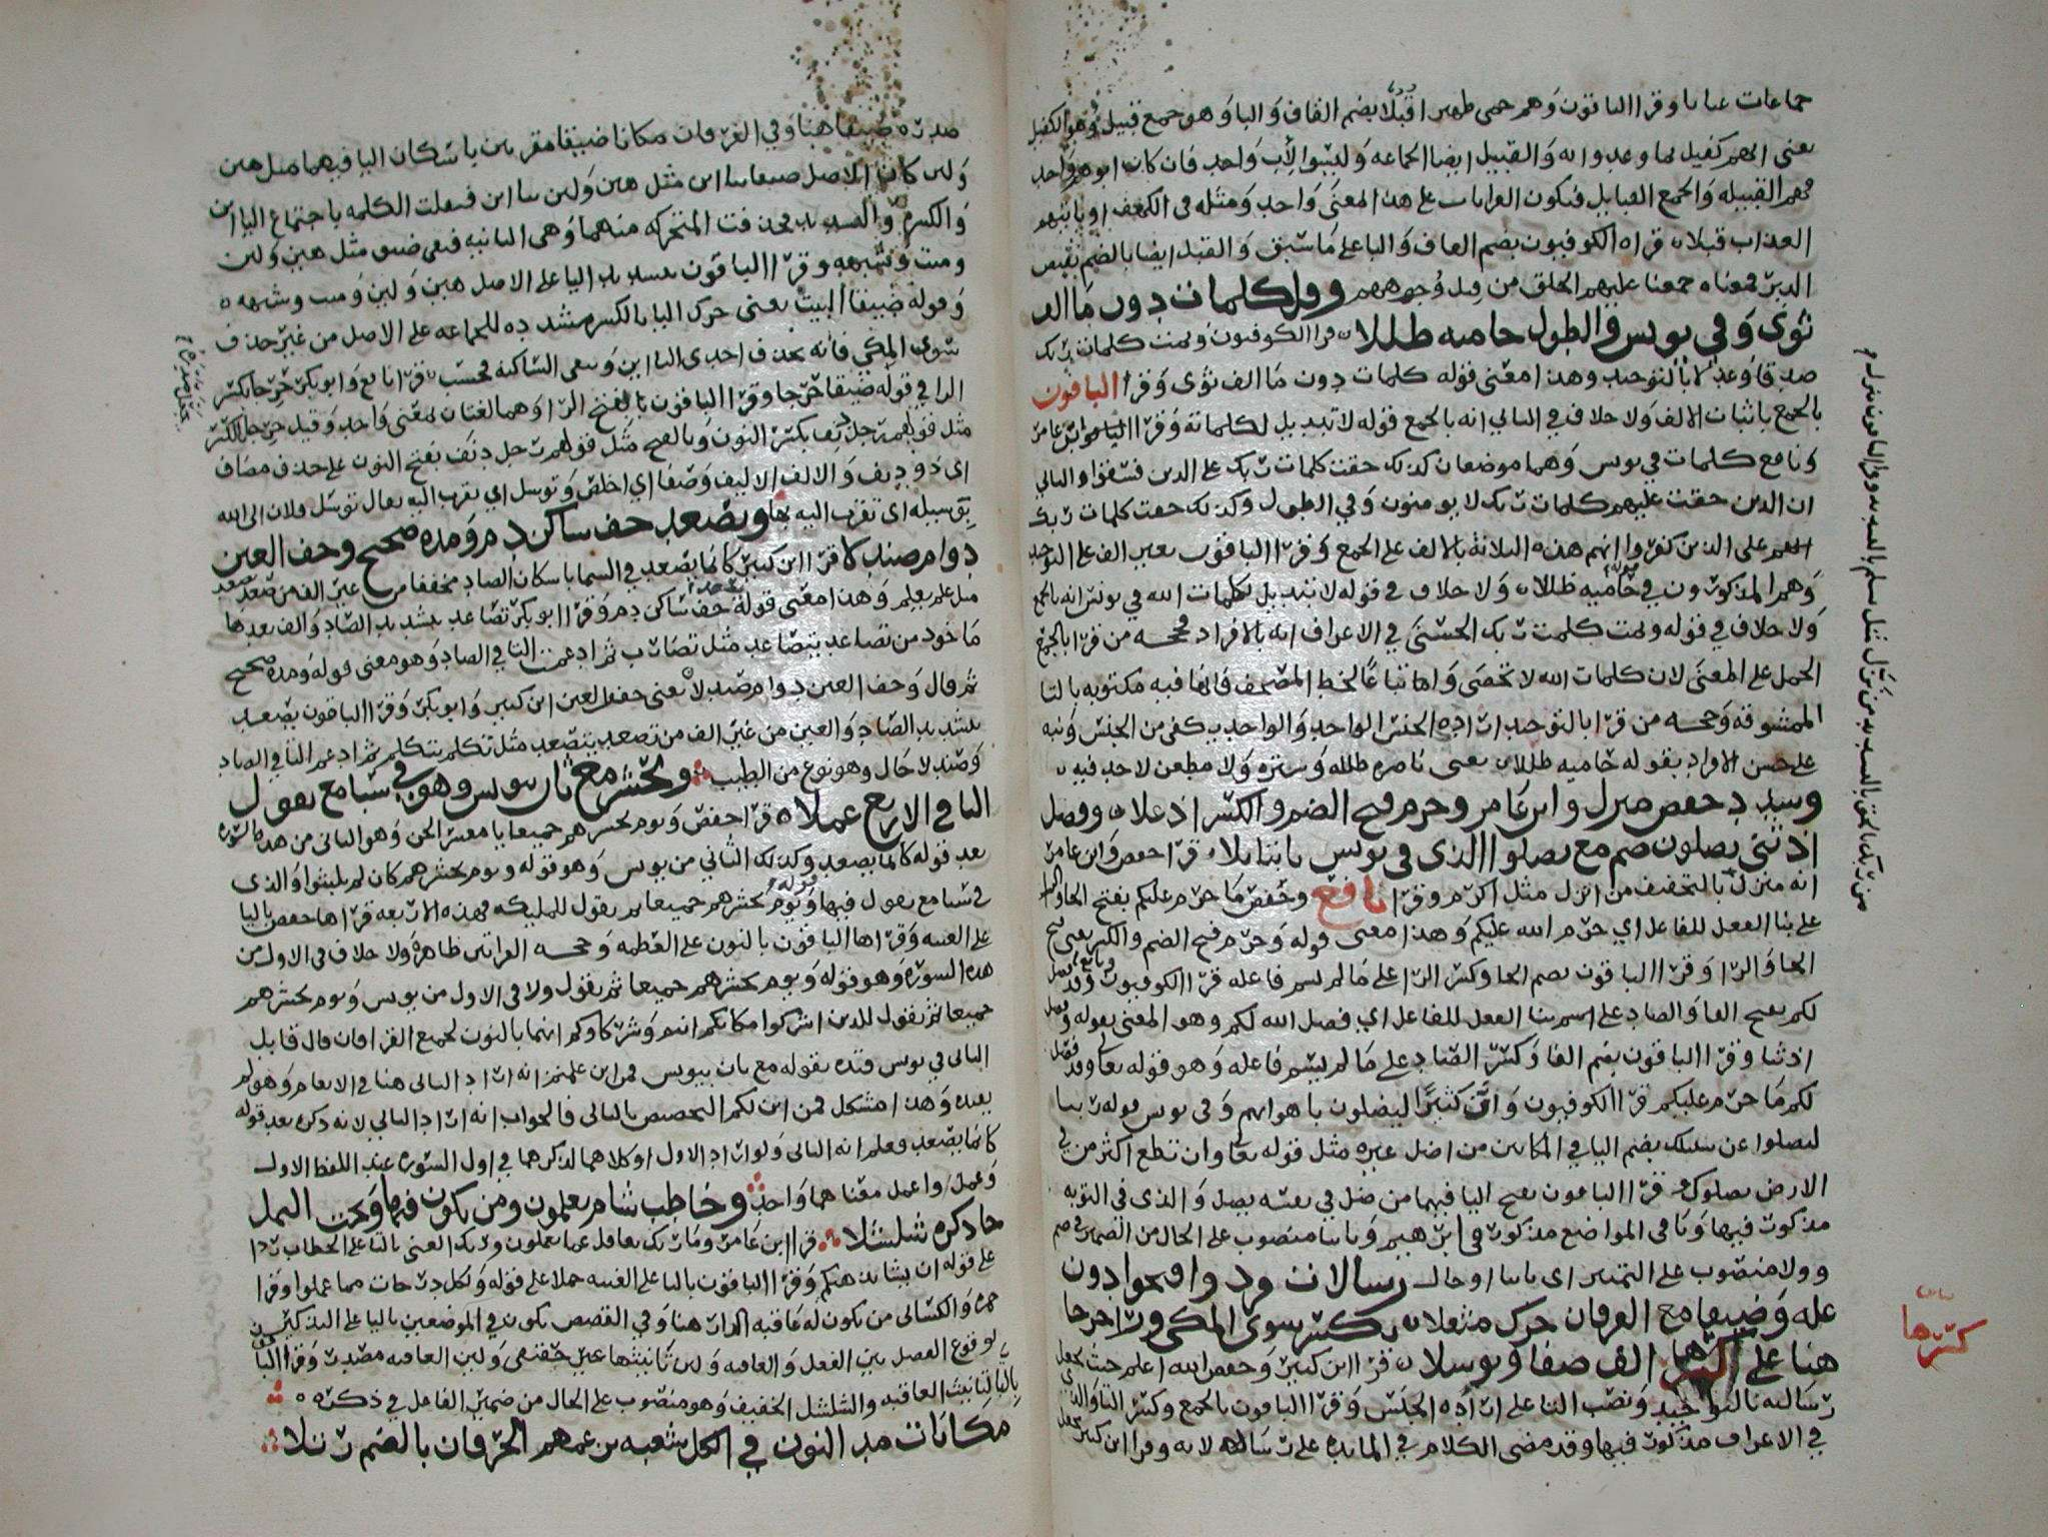 جماعات عيانا وقرا الباقون وهم حمى ظهير اقُبُلًا بضم القاف والبا وهو جمع قبيل وهو الكفيل
يعني انهم كفيل لما وعدوا به والقبيل ايضا الجماعه وليسوا لأب واحد فان كان ابوهم واحد
فهم القبيله والجمع القبايل فتكون القرات على هذا المعنى واحد ومثله في الكهف او ياتيهم
العذاب قبلا قراه الكوفيون بضم القاف والبا على ما سبق والقبل ايضا بالضم نقيض
الدبر فمعناه جمعنا عليهم الخلق من قبل وجوههم وقل كلمات دون ما الف
ثوى وفي يونس والطول حاميه ظللا قرا الكوفيون وتمت كلمات ربك
صدقا وعدلا بالتوحيد وهذا معنى قوله كلمات دون ما الف ثوى وقرا الباقون
بالجمع باثبات الالف ولا خلاف في الثاني انه بالجمع قوله لا تبديل لكلماته وقرا ابن عامر
ونافع كلمات في يونس وهما موضعان كذلك حقت كلمات ربك على الذين فسقوا والثاني
ان الذين حقت عليهم كلمات ربك لا يومنون وفي الطول وكذلك حقت كلمات ربك
على الذين كفروا انهم هذه الثلاثة بالالف على الجمع وقرا الباقون بغير الف على التوحيد
وهم المذكورون في حاميه ظللا ولا خلاف في قوله لا تبديل لكلمات الله في يونس انه بالجمع
ولا خلاف في قوله وتمت كلمت ربك الحسنى في الاعراف انه بالافراد فحجه من قرا بالجمع
الحمل على المعنى لان كلمات الله لا تحصى واتباعًا لخط المصحف فانها فيه مكتوبه بالتا
الممشوقه وحجه من قرا بالتوحيد اراده الجنس الواحد والواحد يكفي من الجنس ونبه
على حسن الافراد بقوله حاميه ظللا يعني ناصره ظلله وستره ولا مطعن لاحد فيه
وشدد حفص منزل وابن عامر وحرم فتح الضم والكسر اذ علا وفصل
اذ ثنى يضلون ضم مع يضلوا الذي في يونس ثابتا ولا قرا حفص وابن عامر
انه منزل بالتخفيف من انزل مثل اكرم وقرا نافع وحفص ما حرم عليكم بفتح الحا والرا
على بنا الفعل للفاعل اي حرم الله عليكم وهذا معنى قوله وحرم فتح الضم والكسر يعني فتح
الحا والرا وقرا الباقون بضم الحا وكسر الرا على ما لم يسم فاعله قرا الكوفيون ونافع وقد فصل
لكم بفتح الفا والصاد على اسم بنا الفعل للفاعل اي فصل الله لكم وهو المعنى بقوله وفصل
اذ ثنا وقرا الباقون بضم الفا وكسر الصاد على ما لم يسم فاعله وهو قوله تعا وقد فصل
لكم ما حرم عليكم قرا الكوفيون وان كثيرًا ليضلون باهوايهم وفي يونس قوله ربنا
ليضلوا عن سبيلك بضم اليا في المكانين من اضل غيره مثل قوله تعا وان تطع اكثر من في
الارض يضلوك وقرا الباقون بفتح اليا فيهما من ضل في نفسه يضل والذي في التوبه
مذكور فيها وما في المواضع مذكور في ابرهيم وثابتا منصوب على الحال من الضمير في ضم
وولا منصوب على التمييز اي ثابتا او حال رسالات فرد وافتحوا دون
عله وضيقا مع الفرقان حرك مثقلا بكسر سوى المكي ورا حرجا
هنا على كسرها الف صفا وتوسلا قرا ابن كثير وحفص الله اعلم حيث يجعل
رسالته بالتوحيد ونصب التا على اراده الجنس وقرا الباقون بالجمع وكسر التا والذي
في الاعراف مذكور فيها وقد مضى الكلام في المايده على رسالاته وقرا ابن كثير يجعل
من ربك بالحق بالتشديد من نزّل مثل سلم بالتشديد وقرا الباقون منزل
كسرها
صدره ضيقا هنا وفي الفرقان مكانا ضيقا مقرنين باسكان اليا فيهما مثل هين
ولين كان الاصل ضيقا مثل هين ولين فثقلت الكلمه باجتماع الياين
والكسر والتشديد فحذفت المتحركه منهما وهي الثانيه فبقي ضيق مثل هين ولين
وميت وشبهه وقرا الباقون بتشديد اليا على الاصل هين ولين وميت وشبهه
وقوله ضيقا البيت يعني حرك اليا بالكسر مشدده للجماعه على الاصل من غير حذف
سوى المكي فانه يحذف احدى الياين وتبقى الساكنه فحسب قرا نافع وابو بكر حرجا بكسر
الرا في قوله ضيقا حرجا وقرا الباقون بالفتح الرا وهما لغتان بمعنى واحد وقيل حرجا بالكسر
مثل قولهم رجل دنف بكسر النون وبالفتح مثل قولهم رجل دنف بفتح النون على حذف مضاف
اي ذو دنف والالف الاليف وصفا اي اخلص وتوسل اي تقرب اليه يقال توسل فلان الى الله
بوسيله اي تقرب اليه بها ويصعد خف ساكن دم ومده صحيح وخف العين
دوام صندلا قرا ابن كثير كانما يصعد في السما باسكان الصاد مخففا من غير الف من صعد يصعد
مثل علم يعلم وهذا معنى قوله خف ساكن دم وقرا ابو بكر تصاعد بتشديد الصاد والف بعدها
ماخوذ من تصاعد يتصاعد مثل تضارب ثم ادغمت التا في الصاد وهو معنى قوله ومده صحيح
ثم قال وخف العين دوام صندلا يعني خفف العين ابن كثير وابو بكر وقرا الباقون يصعد
بتشديد الصاد والعين من غير الف من تصعد يتصعد مثل تكلم يتكلم ثم ادغم التا في الصاد
وصندلا حال وهو نوع من الطيب ويحشر مع ثان بيونس وهو في سبا مع يقول
اليا في الاربع عملا قرا حفص ويوم يحشرهم جميعا يا معشر الجن وهو الثاني من هذه السوره
بعد قوله كانما يصعد وكذلك الثاني من يونس وهو قوله ويوم يحشرهم كان لم يلبثوا والذي
في سبا مع يقول فيها قوله ويوم يحشرهم جميعا ثم يقول للمليكه فهذه الاربعه قراها حفص باليا
على الغيبه وقراها الباقون بالنون على العظمه وحجه القراتين ظاهره ولا خلاف في الاول من
هذه السوره وهو قوله ويوم يحشرهم جميعا ثم يقول ولا في الاول من يونس ويوم يحشرهم
جميعا ثم يقول للذين اشركوا مكانكم انتم وشركاوكم انهما بالنون لجميع القرا فان قال قايل
الثاني في يونس قيده بقوله مع ثان بيونس فمن اين علمتم انه اراد الثاني هنا في الانعام وهو لم
يقيده وهذا مشكل فمن اين لكم التخصيص بالثاني فالجواب انه اراد الثاني لانه ذكره بعد قوله
كانما يصعد فعلم انه الثاني ولو اراد الاول او كلاهما لذكرهما في اول السوره عند اللفظ الاول
وعمل واعمل معناهما واحد وخاطب شام يعلمون ومن يكون فيها وتحت النمل
ذكره شلشلا قرا ابن عامر وما ربك بغافل عما يعملون وربك الغني بالتا على الخطاب ردا
على قوله ان يشا يذهبكم وقرا الباقون باليا على الغيبه حملا على قوله ولكل درجات مما عملوا وقرا
حمزه والكساي من يكون له عاقبه الدار هنا وفي القصص يكون في الموضعين باليا على التذكير
لوقوع الفصل بين الفعل والعاقبه ولان تانيثها غير حقيقي ولان العاقبه مصدر وقرا الباقون
بالتا لتانيث العاقبه والشلشل الخفيف وهو منصوب على الحال من ضمير الفاعل في ذكره
مكانات مد النون في الكل شعبه بزعمهم الحرفان بالضم رتلا